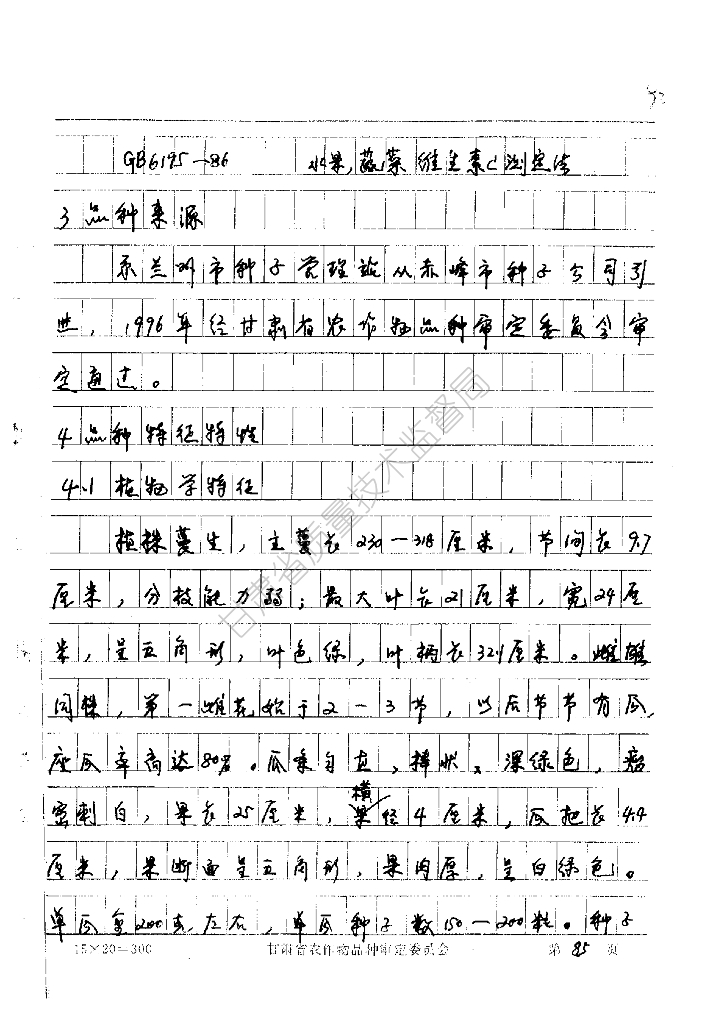 GB6195—86 水果,蔬菜维生素C测定法
3品种来源
系兰州市种子管理站从赤峰市种子公司引
进，1996年经甘肃省农作物品种审定委员会审
定通过。
4品种特征特性
4.1植物学特征
植株蔓生，主蔓长230—318厘米，节间长9.7
厘米，分枝能力弱；最大叶长21厘米，宽24厘
米，呈五角形，叶色绿，叶柄长32.1厘米。雌雄
同株，第一雌花始于2—3节，以后节节有瓜，
座瓜率高达80%。瓜条匀直，棒状、深绿色，瘤
密刺白，果长25厘米，横径4厘米，瓜把长4.4
厘米，果断面呈五角形，果肉厚，呈白绿色。
单瓜重200克左右，单瓜种子数150—200粒。种子
15×20=300 甘肃省农作物品种审定委员会 第 85 页
甘肃省质量技术监督局